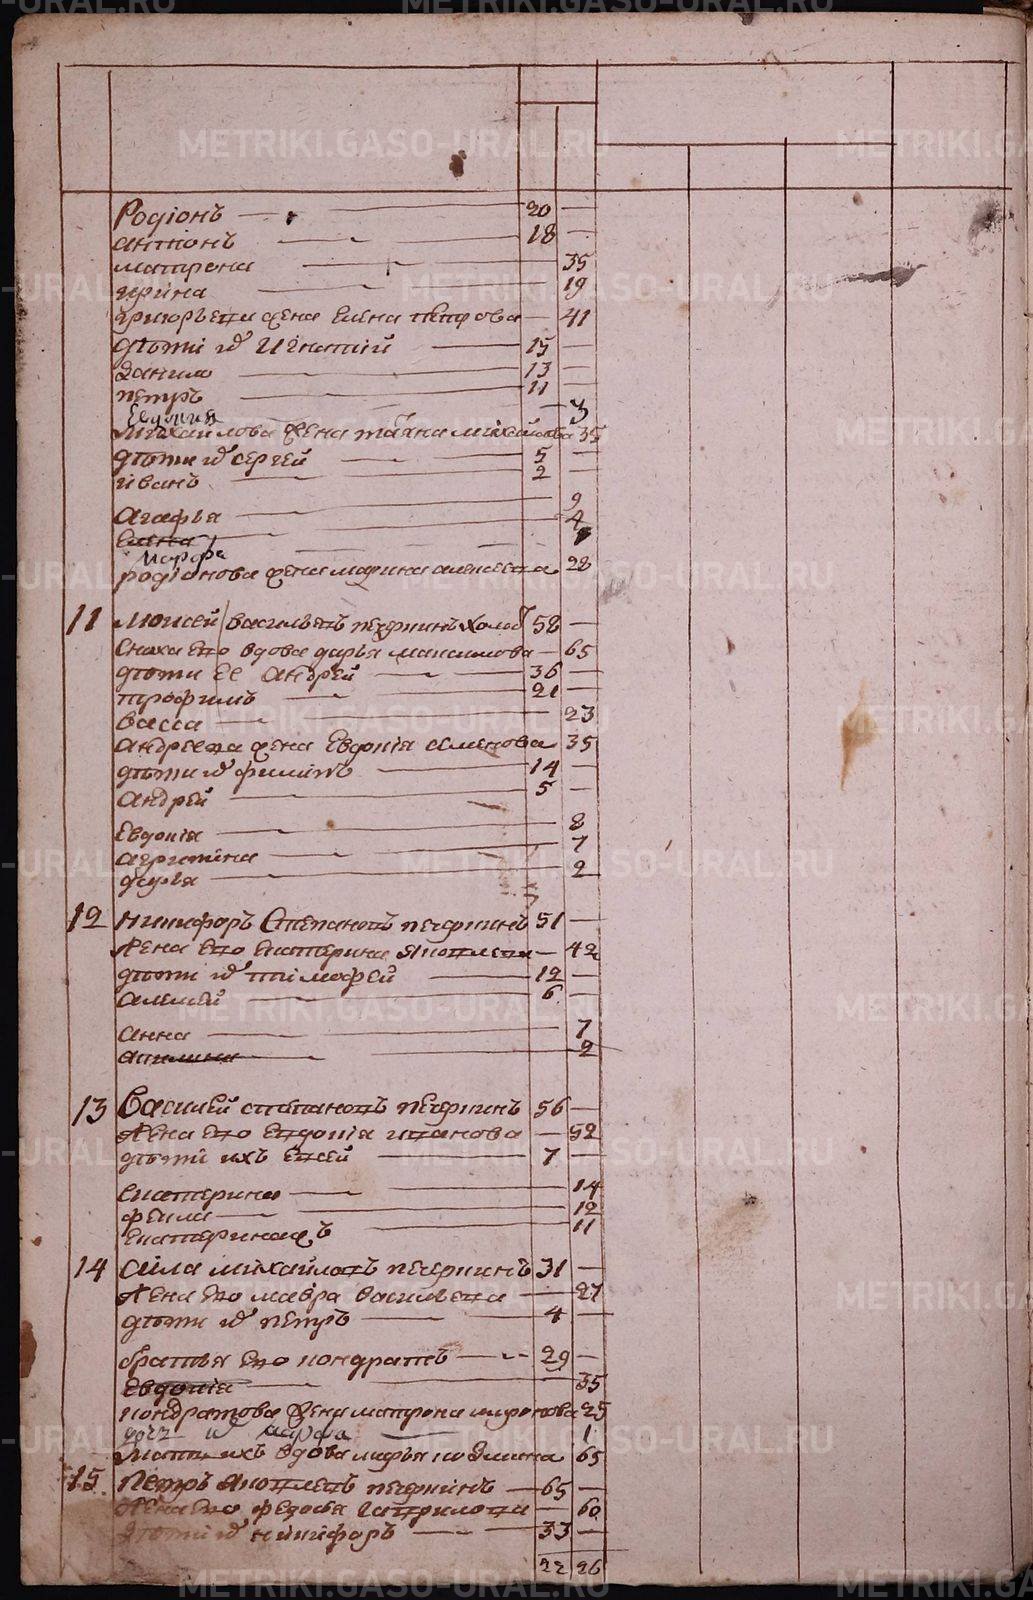 METRIKI.GASO-URAL.RU
Родіонъ — 20 —
антнонъ — 18 —
матрена — 35
ирина — 19
григорьева жена Елена петрова — 41
дѣти их Игнатій — 15 —
данило — 13 —
петръ — 11 —
Евдокия — 3
Михайлова жена татяна михайлова 35
дѣти их сергей — 5 —
иванъ — 2 —
агафья — 9
Елена — 4
Марфа
родіонова жена марина алексеева 28
11 Моисей васильевъ печеркинъ холост 58 —
Сноха ево вдова дарья максимова — 65
дѣти Ее Андрей — 36 —
трофимъ — 21 —
васса — 23
андреева жена Евдокія семенова 35
дѣти их филипъ — 14 —
андрей — 5 —
Евдокія — 8
агрипина — 7
дарья — 2
12 никифоръ Степановъ печеркинъ 51 —
жена ево Екатерина яковлева — 42
дѣти их тимофей — 12 —
алексей — 6 —
анна — 7
акилина — 2
13 Василей степановъ печеркинъ 56 —
жена ево Евдокія иванова — 52
дѣти ихъ Евсей — 7 —
Екатерина — 14
фекла — 12
Екатерина — 11
14 сила михайловъ печеркинъ 31 —
жена ево мавра васильева — 27
дѣти их петръ — 4 —
братья ево кондратъ — 29 —
Евдокія — 35
кондратова жена матрона миронова 25
дочь их марфа — 1
мать ихъ вдова марья козмина 65
15. Петръ яковлевъ печеркинъ — 65 —
жена ево федосья гаврилова — 60
дѣти их никифоръ — 33 —
22 26